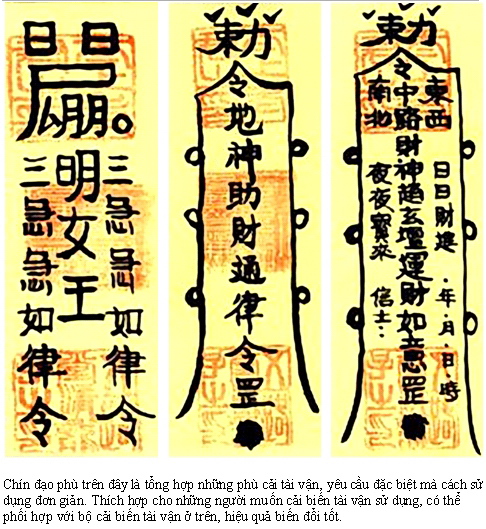 日日
明女王
三急急如律令
三急急如律令
勅令地神助財通律令罡
勅令中路財神趙玄壇運財如意罡
東西
南北
日日財運
夜夜寶來
.年.月.日.時
信士:
Chín đạo phù trên đây là tổng hợp những phù cải tài vận, yêu cầu đặc biệt mà cách sử
dụng đơn giản. Thích hợp cho những người muốn cải biến tài vận sử dụng, có thể
phối hợp với bộ cải biến tài vận ở trên, hiệu quả biến đổi tốt.